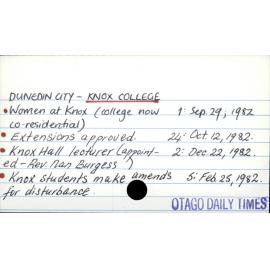 DUNEDIN CITY - KNOX COLLEGE
• Women at Knox (college now 1: Sep. 29, 1982
co-residential)
• Extensions approved. 24: Oct. 12, 1982.
• Knox Hall lecturer (appoint- 2: Dec. 22, 1982.
ed - Rev. Nan Burgess)
• Knox students make amends 5: Feb. 25, 1982.
for disturbance.
OTAGO DAILY TIMES